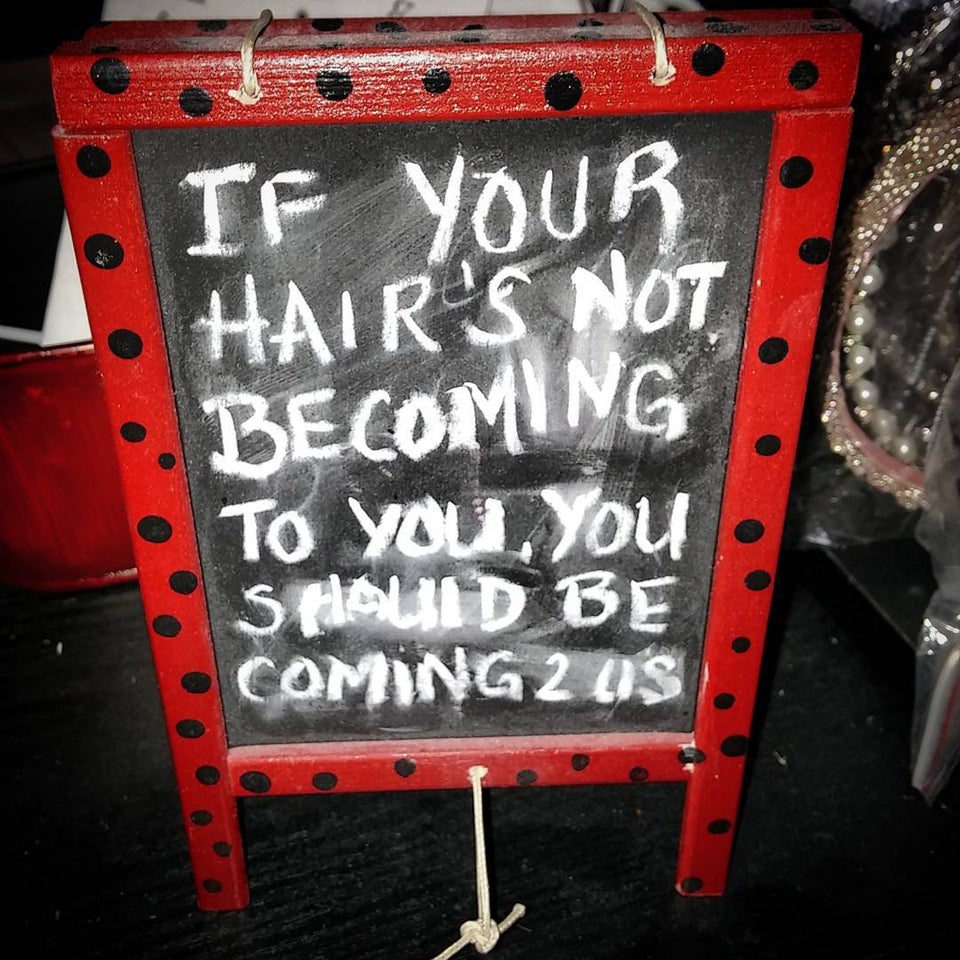 IF YOUR
HAIR'S NOT
BECOMING
TO YOU, YOU
SHOULD BE
COMING 2 US